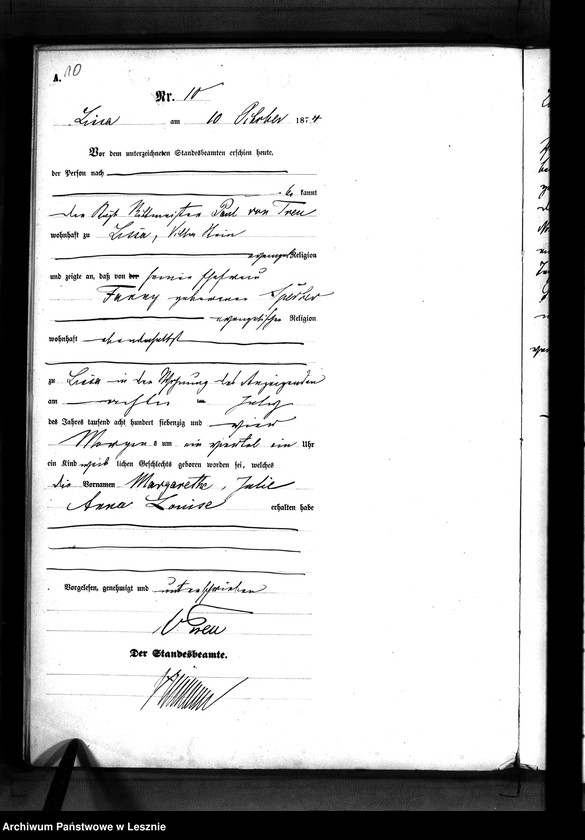 A. 10
Nr. 10
Lissa am 10 October 1874
Vor dem unterzeichneten Standesbeamten erschien heute,
der Person nach
be kannt
der Kgl Rittmeister Paul von Treu
wohnhaft zu Lissa,
evangel Religion
und zeigte an, daß von der seiner Ehefrau
Fanny geborenen Sperber
evangelischer Religion
wohnhaft ebendaselbst
zu Lissa in der Wohnung des Anzeigenden
am achten ten July
des Jahres tausend acht hundert siebenzig und vier
Morgens um ein viertel ein Uhr
ein Kind weib lichen Geschlechts geboren worden sei, welches
die Vornamen Margarethe, Julie
Anna Louise erhalten habe
Vorgelesen, genehmigt und unterschrieben
v Treu
Der Standesbeamte.
Archiwum Państwowe w Lesznie